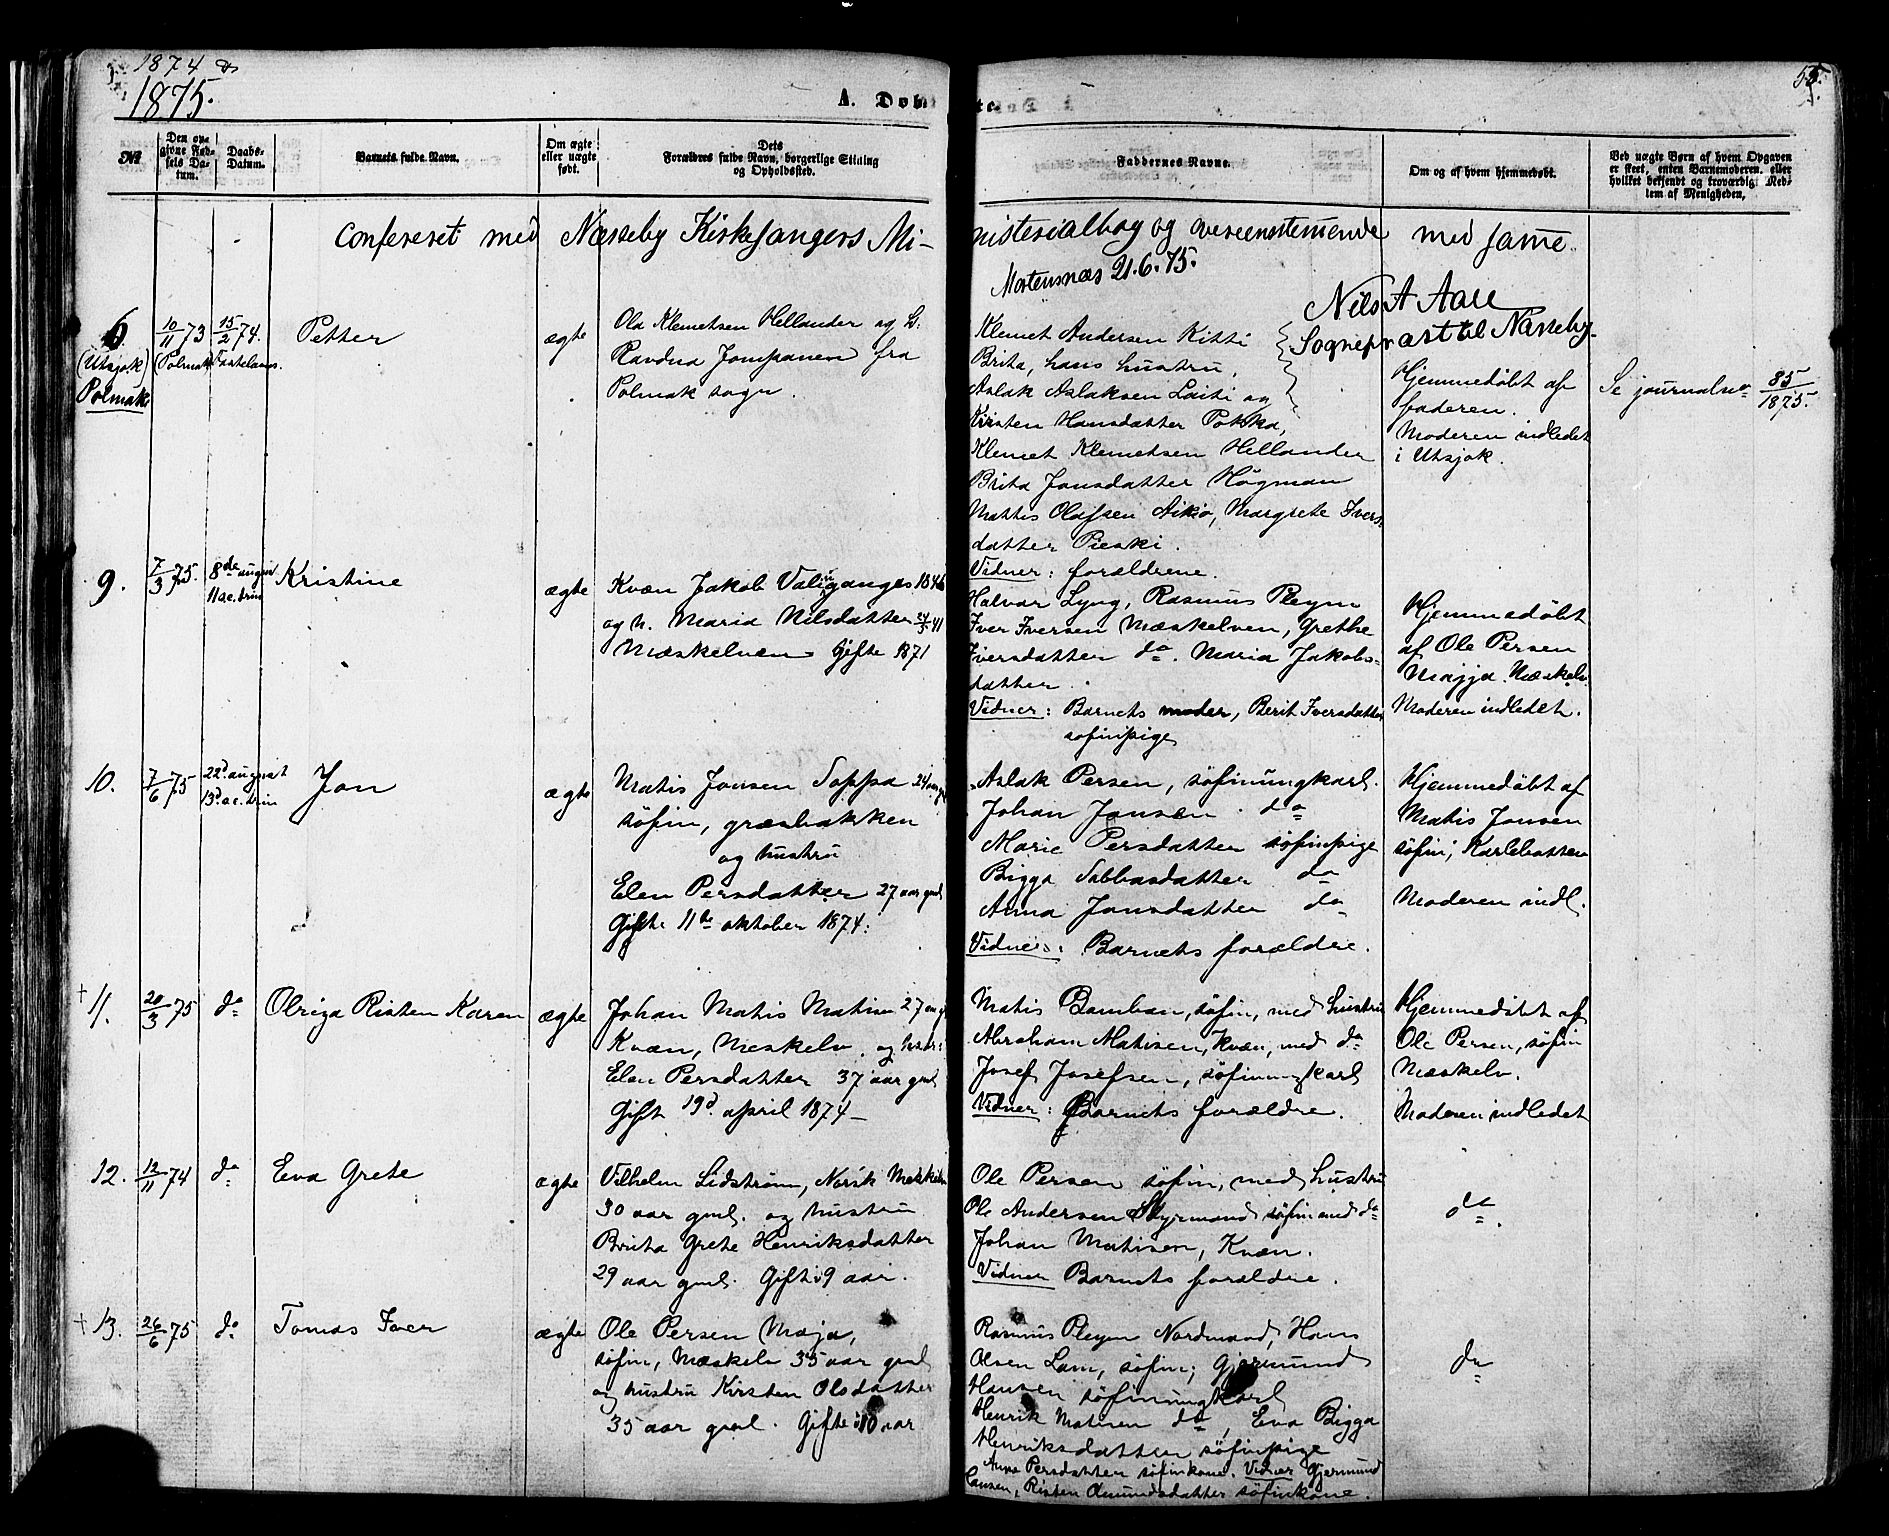 1874 &
1875.
A. Døb
55.
No
Den opgivne Fødsels Datum.
Daabs-Datum.
Barnets fulde Navn.
Om ægte eller uægte født.
Dets Forældres fulde Navn, borgerlige Stilling og Opholdssted.
Faddernes Navne.
Om og af hvem hjemmedøbt.
Ved uægte Børn af hvem Opgaven er skeet, enten Barnemoderen, eller hvilket bekjendt og troværdig Medlem af Menigheden.
Confereret med Næsseby Kirkesangers Mi-
nisterialbog og overeensstemmende med same.
Mortensnæs 21.6.75.
Nils A Aall
Sognepræst til Næsseby.
6.
(Utsjok)
Polmak
10/11 73
(Polmak
15/2 74.
Fastelavns.
Petter
ægte
Ola Klemetsen Hellander og h.
Ravdna Jompanen fra
Polmak sogn.
Klemet Andersen Kitti
Brita, hans hustru,
Aslak Aslaksen Laiti og
Kirsten Hansdatter Pokka,
Klemet Klemetsen Hellander
Brita Jonsdatter Högman
Mattis Olafsen Aikio, Margrete Ivers-
datter Pieski.
Vidner: forældrene.
Hjemmedøbt af
faderen.
Moderen indledet
i Utsjok.
Se journalno 85/1875.
9.
7/3 75.
8de august
11 s.e. trin
Kristine
ægte
Kvæn Jakob Valinganges 1846
og h. Maria Nilsdatter 24/3 41
Mæskelven Gifte 1871
Halvar Lyng, Rasmus Pleym
Iver Iversen Mæskelven, Grethe
Iversdatter do. Maria Jakobs-
datter.
Vidner: Barnets moder, Berit Iversdatter
søfinpige
Hjemmedøbt
af Ole Persen
Majja Mæskelv.
Moderen indledet.
10.
7/6 75
22d august
13d s.e. trin
Jon
ægte
Matis Jonsen Soppa 24 aar gl
søfin, græsbakken
og hustru
Elen Persdatter 27 aar gml
Gifte 11te oktober 1874.
Aslak Persen, søfinungkarl.
Johan Jonsen do
Marie Persdatter søfinpige
Bigga Sabbasdatter do
Anna Jonsdatter do
Vidner: Barnets forældre.
Hjemmedøbt af
Matis Jonsen
søfin, Karlebotten
Moderen indl.
† 11.
20/3 75
do
Olriga Risten Karen
ægte
Johan Matis Matisen 27 aar g
Kvæn, Meskelv, og hustr:
Elen Persdatter 37 aar gml
Gift 19d april 1874 -
Matis Bomban, søfin, med hustru
Abraham Matisen, Kvæn, med do
Josef Josefsen, søfinungkarl
Vidner: Barnets forældre.
Hjemmedøbt af
Ole Persen, søfin
Mæskelv.
Moderen indledet
12.
12/11 74
do
Eva Grete
ægte
Vilhelm Lidstrøm, Norsk Mæskelv
30 aar gml. og hustru
Brita Grete Henriksdatter
29 aar gml. Gift i 9 aar.
Ole Persen søfin, med hustru
Ole Andersen Styrmand søfin med do
Johan Matisen, Kvæn.
Vidner Barnets forældre.
do.
† 13.
26/6 75
do
Tomas Iver
ægte
Ole Persen Maja,
søfin, Mæskelv 35 aar gml
og hustru Kirsten Olsdatter
35 aar gml. Gifte i 10 aar
Rasmus Pleym Nordmand, Hans
Olsen Lam, søfin; Gjermund
Hansen søfinungkarl
Henrik Matisen do, Eva Bigga
Henriksdatter søfinpige
Anna Persdatter søfinkone. Vidner Gjermund
Hansen, Risten Amundsdatter søfinkone.
do